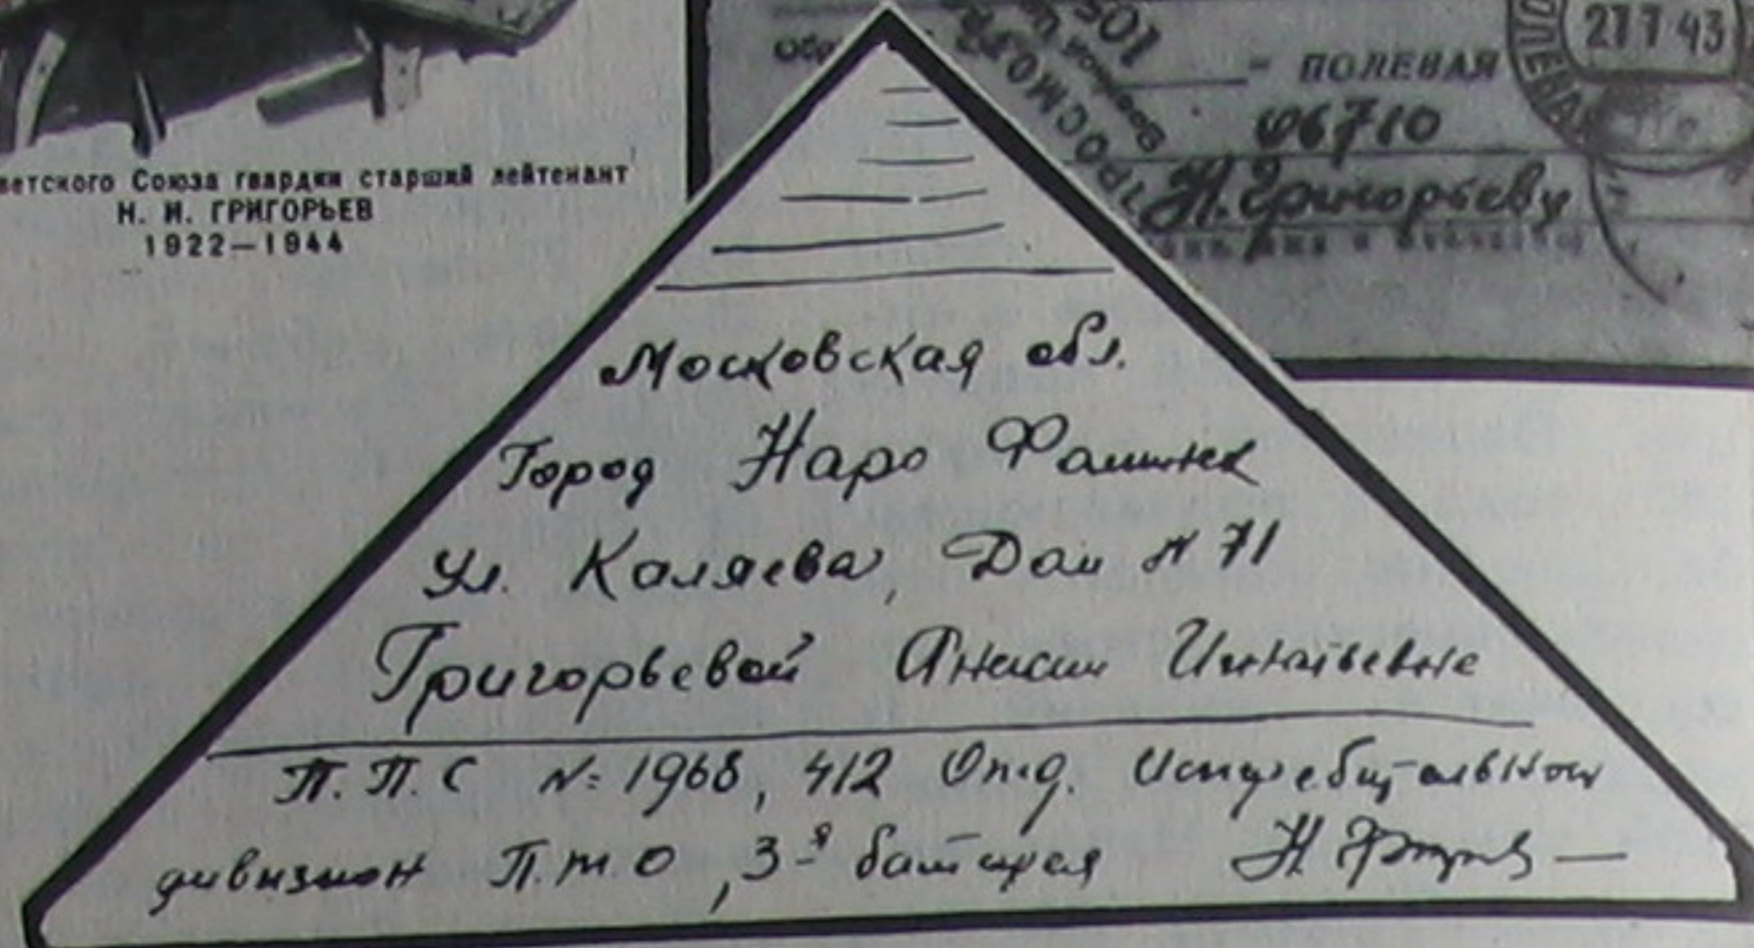 ветского Союза гвардии старший лейтенант
Н. И. ГРИГОРЬЕВ
1922—1944
ПРОСМОТР
Военной Ц
105
27 7 43
- ПОЛЕВАЯ
06710
Н. Григорьеву
Московская обл.
Город Наро Фоминск
ул. Каляева, Дом № 71
Григорьевой Анисии Игнатьевне
П. П. С №: 1968, 412 Отд. Истребительной
дивизион П.Т.О, 3-я батарея